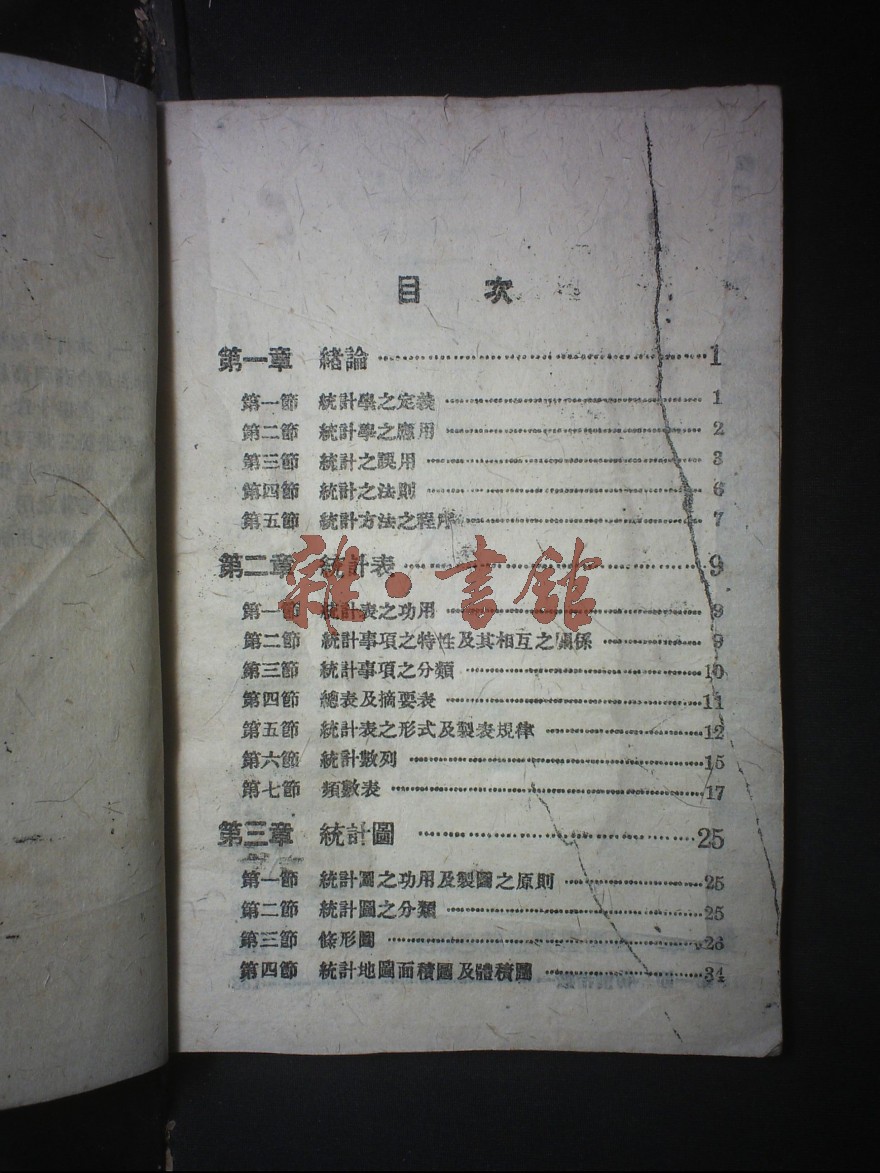 目 次
第一章 緒論 1
第一節 統計學之定義 1
第二節 統計學之應用 2
第三節 統計之誤用 3
第四節 統計之法則 6
第五節 統計方法之程序 7
第二章 統計表 9
第一節 統計表之功用 9
第二節 統計事項之特性及其相互之關係 9
第三節 統計事項之分類 10
第四節 總表及摘要表 11
第五節 統計表之形式及製表規律 12
第六節 統計數列 15
第七節 類數表 17
第三章 統計圖 25
第一節 統計圖之功用及製圖之原則 25
第二節 統計圖之分類 25
第三節 條形圖 26
第四節 統計地圖面積圖及體積圖 34
雜·書館